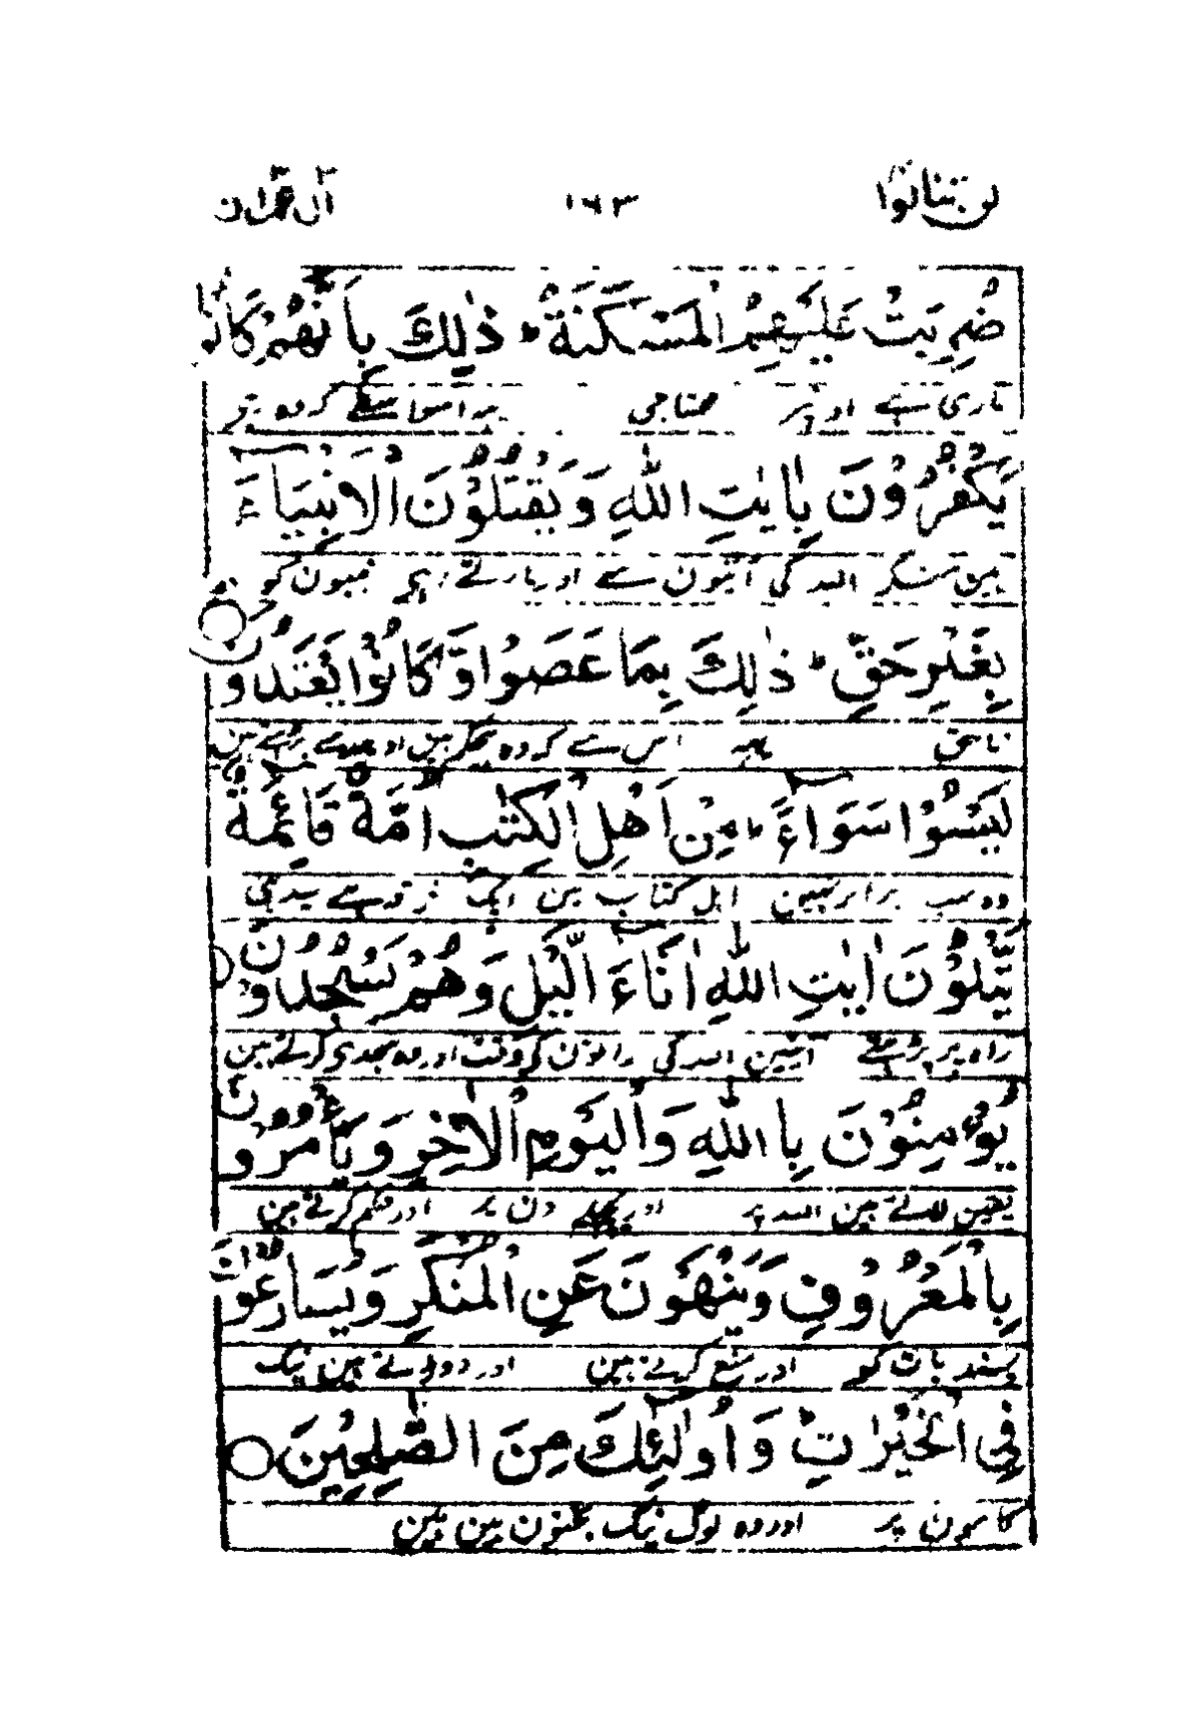 لن تنالوا ١٦٣ آل عمران ٣
ضُرِبَتْ عَلَيْهِمُ الْمَسْكَنَةُ ؕ ذٰلِكَ بِاَنَّهُمْ كَانُوْا
ماری ہے اوپر محتاجی یہ اسواسطے کہ وہ تھے
يَكْفُرُوْنَ بِاٰيٰتِ اللّٰهِ وَيَقْتُلُوْنَ الْاَنْبِيَآءَ
ہین منکر اللہ کی آیتون سے اور مارتے نبیون کو
بِغَيْرِ حَقٍّ ؕ ذٰلِكَ بِمَا عَصَوْا وَّكَانُوْا يَعْتَدُوْنَ
ناحق یہہ اس سے کہ وہ بیحکم ہین اور حد سے بڑہتے ہین
لَيْسُوْا سَوَآءً ؕ مِنْ اَهْلِ الْكِتٰبِ اُمَّةٌ قَآئِمَةٌ
وہ سب برابر نہین اہل کتاب مین ایک فرقہ ہے سیدہی
يَّتْلُوْنَ اٰيٰتِ اللّٰهِ اٰنَآءَ الَّيْلِ وَهُمْ يَسْجُدُوْنَ
راہ پر پڑہتے آیتین اللہ کی راتون کی وقت اور وہ سجدی کرتے ہین
يُؤْمِنُوْنَ بِاللّٰهِ وَالْيَوْمِ الْاٰخِرِ وَيَاْمُرُوْنَ
یقین لاتے ہین اللہ پر اور پچھلے دن پر اور حکم کرتے ہین
بِالْمَعْرُوْفِ وَيَنْهَوْنَ عَنِ الْمُنْكَرِ وَيُسَارِعُوْنَ
پسند بات کو اور منع کرتے ہین اور دوڑتے ہین نیک
فِى الْخَيْرٰتِ ؕ وَاُولٰٓئِكَ مِنَ الصّٰلِحِيْنَ
کامون پر اور وہ لوگ نیک بختون مین ہین